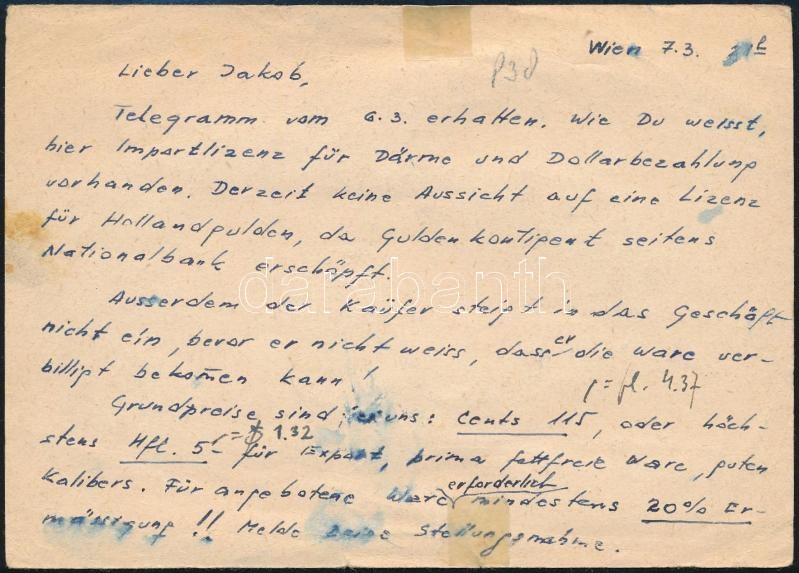 Wien 7.3.
Lieber Jakob,
838
Telegramm vom 6.3. erhalten. Wie Du weisst,
hier Importlizenz für Därme und Dollarbezahlung
vorhanden. Derzeit keine Aussicht auf eine Lizenz
für Hollandgulden, da Guldenkontigent seitens
Nationalbank erschöpft.
darabanth
Ausserdem der Kaüfer steigt in das Geschäft
nicht ein, bevor er nicht weiss, dass er die Ware ver-
billigt bekommen kann!
= fl. 4.37
Grundpreise sind uns: Cents 115, oder höch-
= $ 1.32
stens Hfl. 5.- für Export, prima fettfreie Ware, guten
Kalibers. Für angebotene Ware erforderlich mindestens 20% Er-
mässigung!! Melde Deine Stellungsnahme.